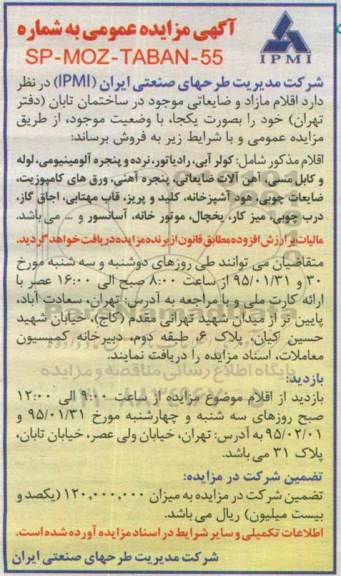 آگهی مزایده عمومی به شماره
SP-MOZ-TABAN-55
IPMI
شرکت مدیریت طرحهای صنعتی ایران (IPMI) در نظر
دارد اقلام مازاد و ضایعاتی موجود در ساختمان تابان (دفتر
تهران) خود را بصورت یکجا، با وضعیت موجود، از طریق
مزایده عمومی و با شرایط زیر به فروش برساند:
اقلام مذکور شامل: کولر آبی، رادیاتور، نرده و پنجره آلومینیومی، لوله
و کابل مسی، آهن آلات ضایعاتی، پنجره آهنی، ورق های کامپوزیت،
ضایعات چوبی، هود آشپزخانه، کلید و پریز، قاب مهتابی، اجاق گاز،
درب چوبی، میز کار، یخچال، موتور خانه، آسانسور و ... می باشد.
مالیات بر ارزش افزوده مطابق قانون از برنده مزایده دریافت خواهد گردید.
متقاضیان می توانند طی روزهای دوشنبه و سه شنبه مورخ
۳۰ و ۹۵/۰۱/۳۱ از ساعت ۸:۰۰ صبح الی ۱۶:۰۰ عصر با
ارائه کارت ملی و با مراجعه به آدرس: تهران، سعادت آباد،
پایین تر از میدان شهید تهرانی مقدم (کاج)، خیابان شهید
حسین کیان، پلاک ۶، طبقه دوم، دبیرخانه کمیسیون
معاملات، اسناد مزایده را دریافت نمایند.
پایگاه اطلاع رسانی مناقصه و مزایده
بازدید:
بازدید از اقلام موضوع مزایده از ساعت ۹:۰۰ الی ۱۲:۰۰
صبح روزهای سه شنبه و چهارشنبه مورخ ۹۵/۰۱/۳۱ و
۹۵/۰۲/۰۱ به آدرس: تهران، خیابان ولی عصر، خیابان تابان،
پلاک ۳۱ می باشد.
تضمین شرکت در مزایده:
تضمین شرکت در مزایده به میزان ۱۲۰,۰۰۰,۰۰۰ (یکصد و
بیست میلیون) ریال می باشد.
اطلاعات تکمیلی و سایر شرایط در اسناد مزایده آورده شده است.
شرکت مدیریت طرحهای صنعتی ایران